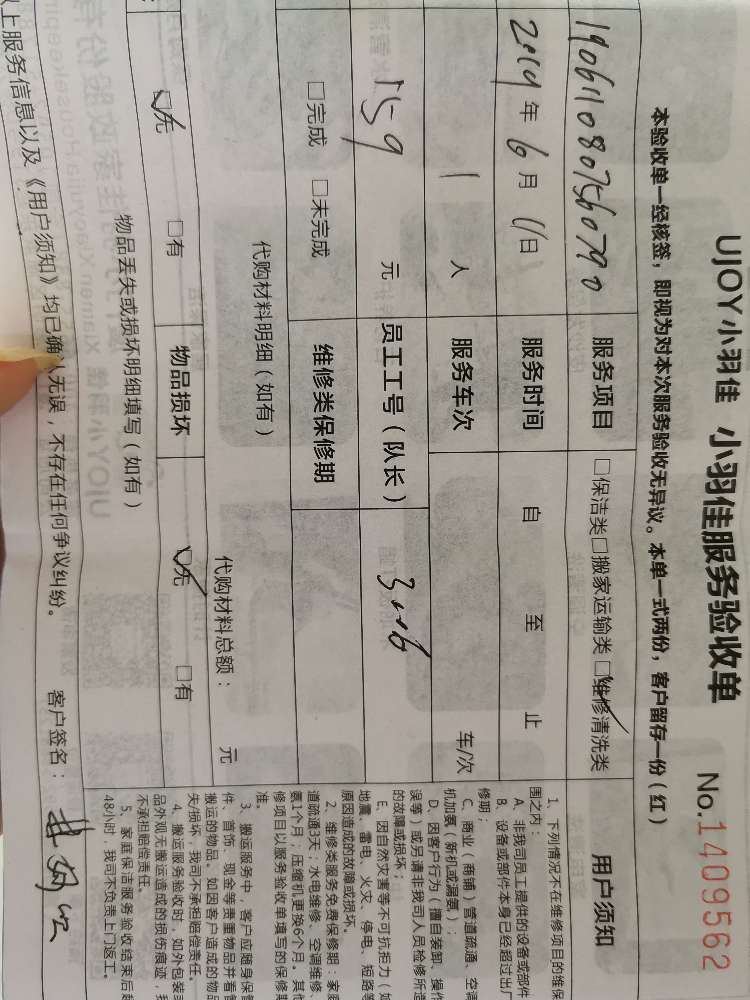 UJOY小羽佳 小羽佳服务验收单 No.1409562
本验收单一经核签，即视为对本次服务验收无异议。本单一式两份，客户留存一份（红）
服务项目 □保洁类□搬家运输类□维修清洗类
2019年6月11日 服务时间 自 至 止
1人 服务车次 车/次
159元 员工工号（队长）
□完成 □未完成 维修类保修期
代购材料明细（如有）
代购材料总额： 元
□无 □有 物品损坏 □无 □有
物品丢失或损坏明细填写（如有）
上服务信息以及《用户须知》均已确认无误，不存在任何争议纠纷。 客户签名：
用户须知
1、下列情况不在维修项目的维保
围之内：
A、非我司员工提供的设备或部件
B、设备或部件本身已经超过出厂
修期；
C、商业（商铺）管道疏通、空调
机加氨（新机或漏氨）；
D、因客户行为（擅自装卸、操作
误等）或另请非我司人员检修所造
的故障或损坏；
E、因自然灾害等不可抗拒力（如
地震、雷电、火灾、停电、短路等
原因造成的故障或损坏。
2、维修类服务免费保修期：家庭
道疏通3天；水电维修、空调维修、
氨1个月；压缩机更换6个月。其他
修项目以服务验收单填写的保修期
准。
3、搬运服务中，客户应随身保管
件、首饰、现金等贵重物品并看管
搬运的物品。如因客户造成的物品
失/损坏，我司不承担赔偿责任。
4、搬运服务验收时，如外包装或
品外观无搬运造成的损伤痕迹，我
不承担赔偿责任。
5、家庭保洁服务验收结束后超
48小时，我司不负责上门返工。